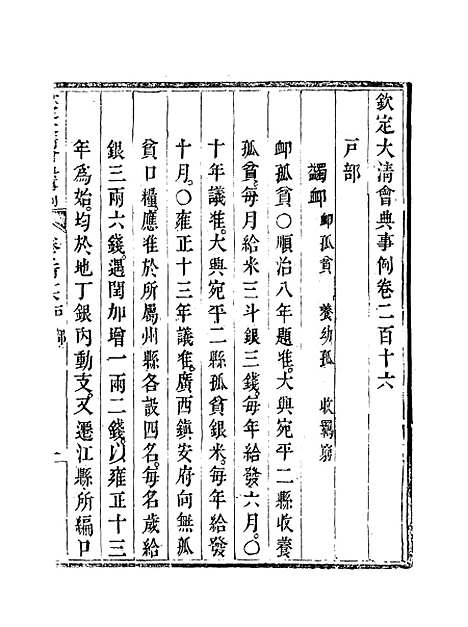 欽定大清會典事例卷二百十六
戶部
蠲卹 卹孤貧 養幼孤 收羇窮
卹孤貧○順治八年題准。大興宛平二縣收養
孤貧。每月給米三斗銀三錢。每年給發六月。○
十年議准。大興宛平二縣孤貧銀米。每年給發
十月。○雍正十三年議准。廣西鎮安府向無孤
貧口糧。應准於所屬州縣各設四名。每名歲給
銀三兩六錢。遇閏加增一兩二錢。以雍正十三
年爲始。均於地丁銀內動支。又遷江縣所編口